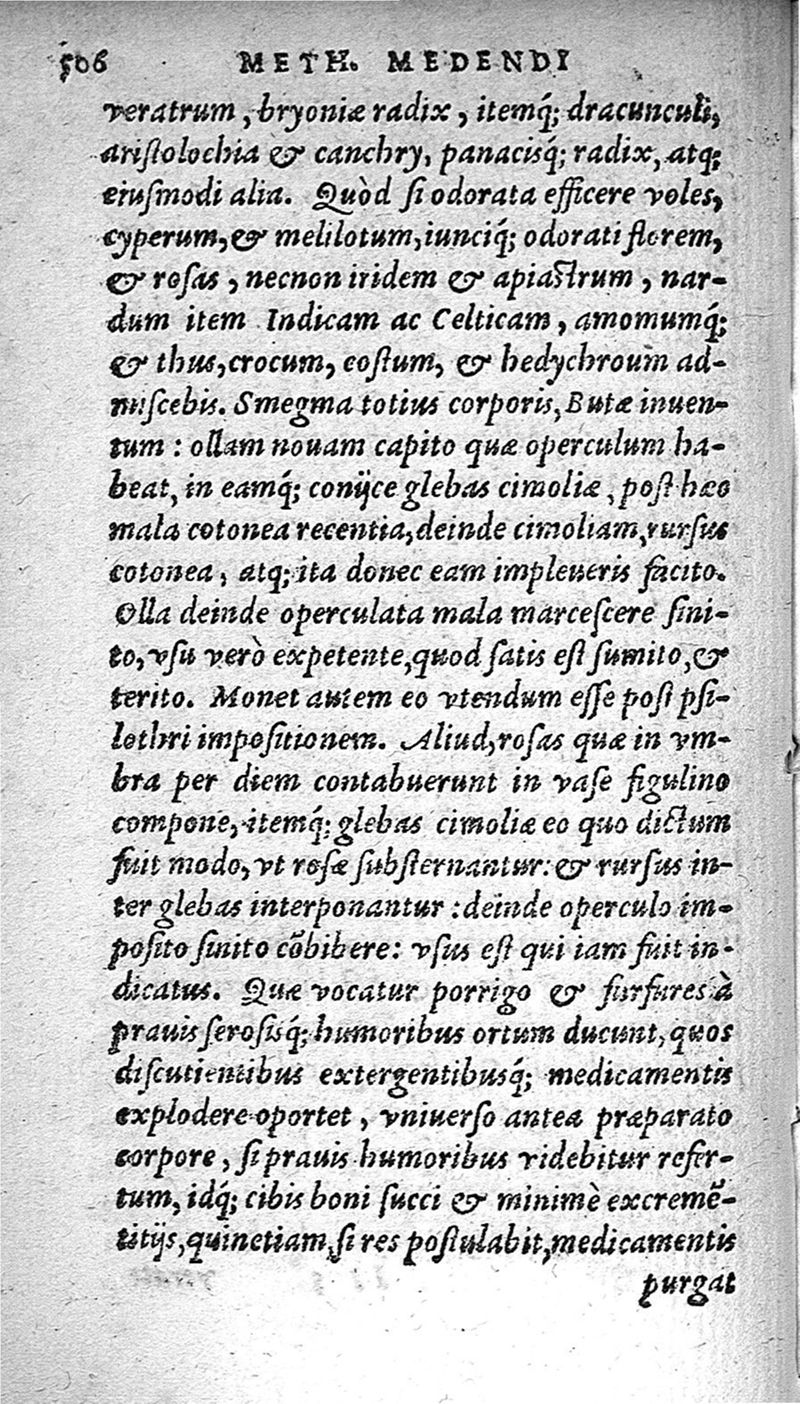 506 METH. MEDENDI
veratrum, bryoniæ radix, itemq́; dracunculi,
aristolochia & canchry, panacisq́; radix, atq;
eiusmodi alia. Quòd si odorata efficere voles,
cyperum, & melilotum, iunciq́; odorati florem,
& rosas, necnon iridem & apiastrum, nar-
dum item Indicam ac Celticam, amomumq́;
& thus, crocum, costum, & hedychroum ad-
miscebis. Smegma totius corporis, Butæ inuen-
tum: ollam nouam capito quæ operculum ha-
beat, in eamq́; conijce glebas cimoliæ, post hæc
mala cotonea recentia, deinde cimoliam, rursus
cotonea, atq; ita donec eam impleueris facito.
Olla deinde operculata mala marcescere sini-
to, vsu verò expetente, quod satis est sumito, &
terito. Monet autem eo vtendum esse post psi-
lothri impositionem. Aliud, rosas quæ in vm-
bra per diem contabuerunt in vase figulino
compone, itemq́; glebas cimoliæ eo quo dictum
fuit modo, vt rosæ substernantur: & rursus in-
ter glebas interponantur: deinde operculo im-
posito sinito cōbibere: vsus est qui iam fuit in-
dicatus. Quæ vocatur porrigo & furfures à
prauis serosisq́; humoribus ortum ducunt, quos
discutientibus extergentibusq́; medicamentis
explodere oportet, vniuerso antea præparato
corpore, si prauis humoribus videbitur refer-
tum, idq́; cibis boni succi & minimè excremē-
titijs, quinetiam, si res postulabit, medicamentis
purgat